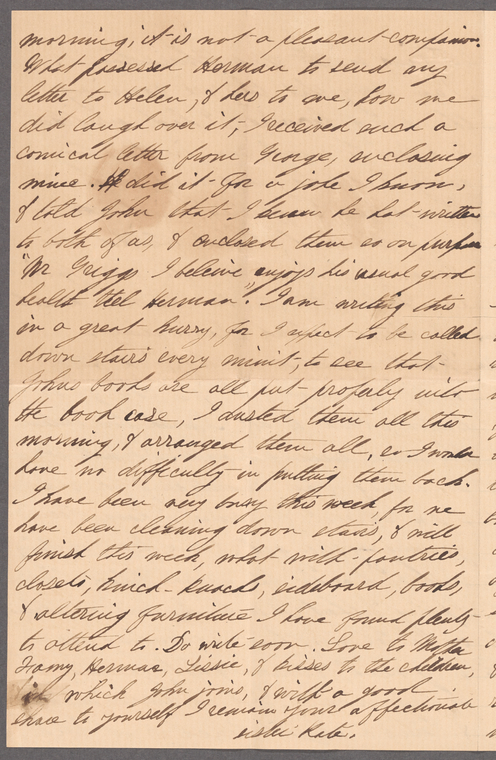 morning, it is not a pleasant companion.
What possessed Herman to send my
letter to Helen, & hers to me, how we
did laugh over it, I received such a
comical letter from George, enclosing
mine. He did it for a joke I know,
& told John that I knew he had written
to both of us, & enclosed them so on purpose
"Mr Griggs I beleive enjoys his usual good
health tell Herman". I am writing this
in a great hurry, for I expect to be called
down stairs every minit, to see that
Johns books are all put properly into
the book case, I dusted them all this
morning, & arranged them all, so I would
have no difficulty in putting them back.
I have been very busy this week, for we
have been cleaning down stairs, & will
finish this week, what with pantries,
closets, knick knacks, sideboard, books,
& altering furniture I have found plenty
to attend to. Do write soon. Love to Mother
Fanny, Herman, Lissie, & kisses to the children,
in which John joins, & with a good
share to yourself I remain your affectionate
sister Kate.